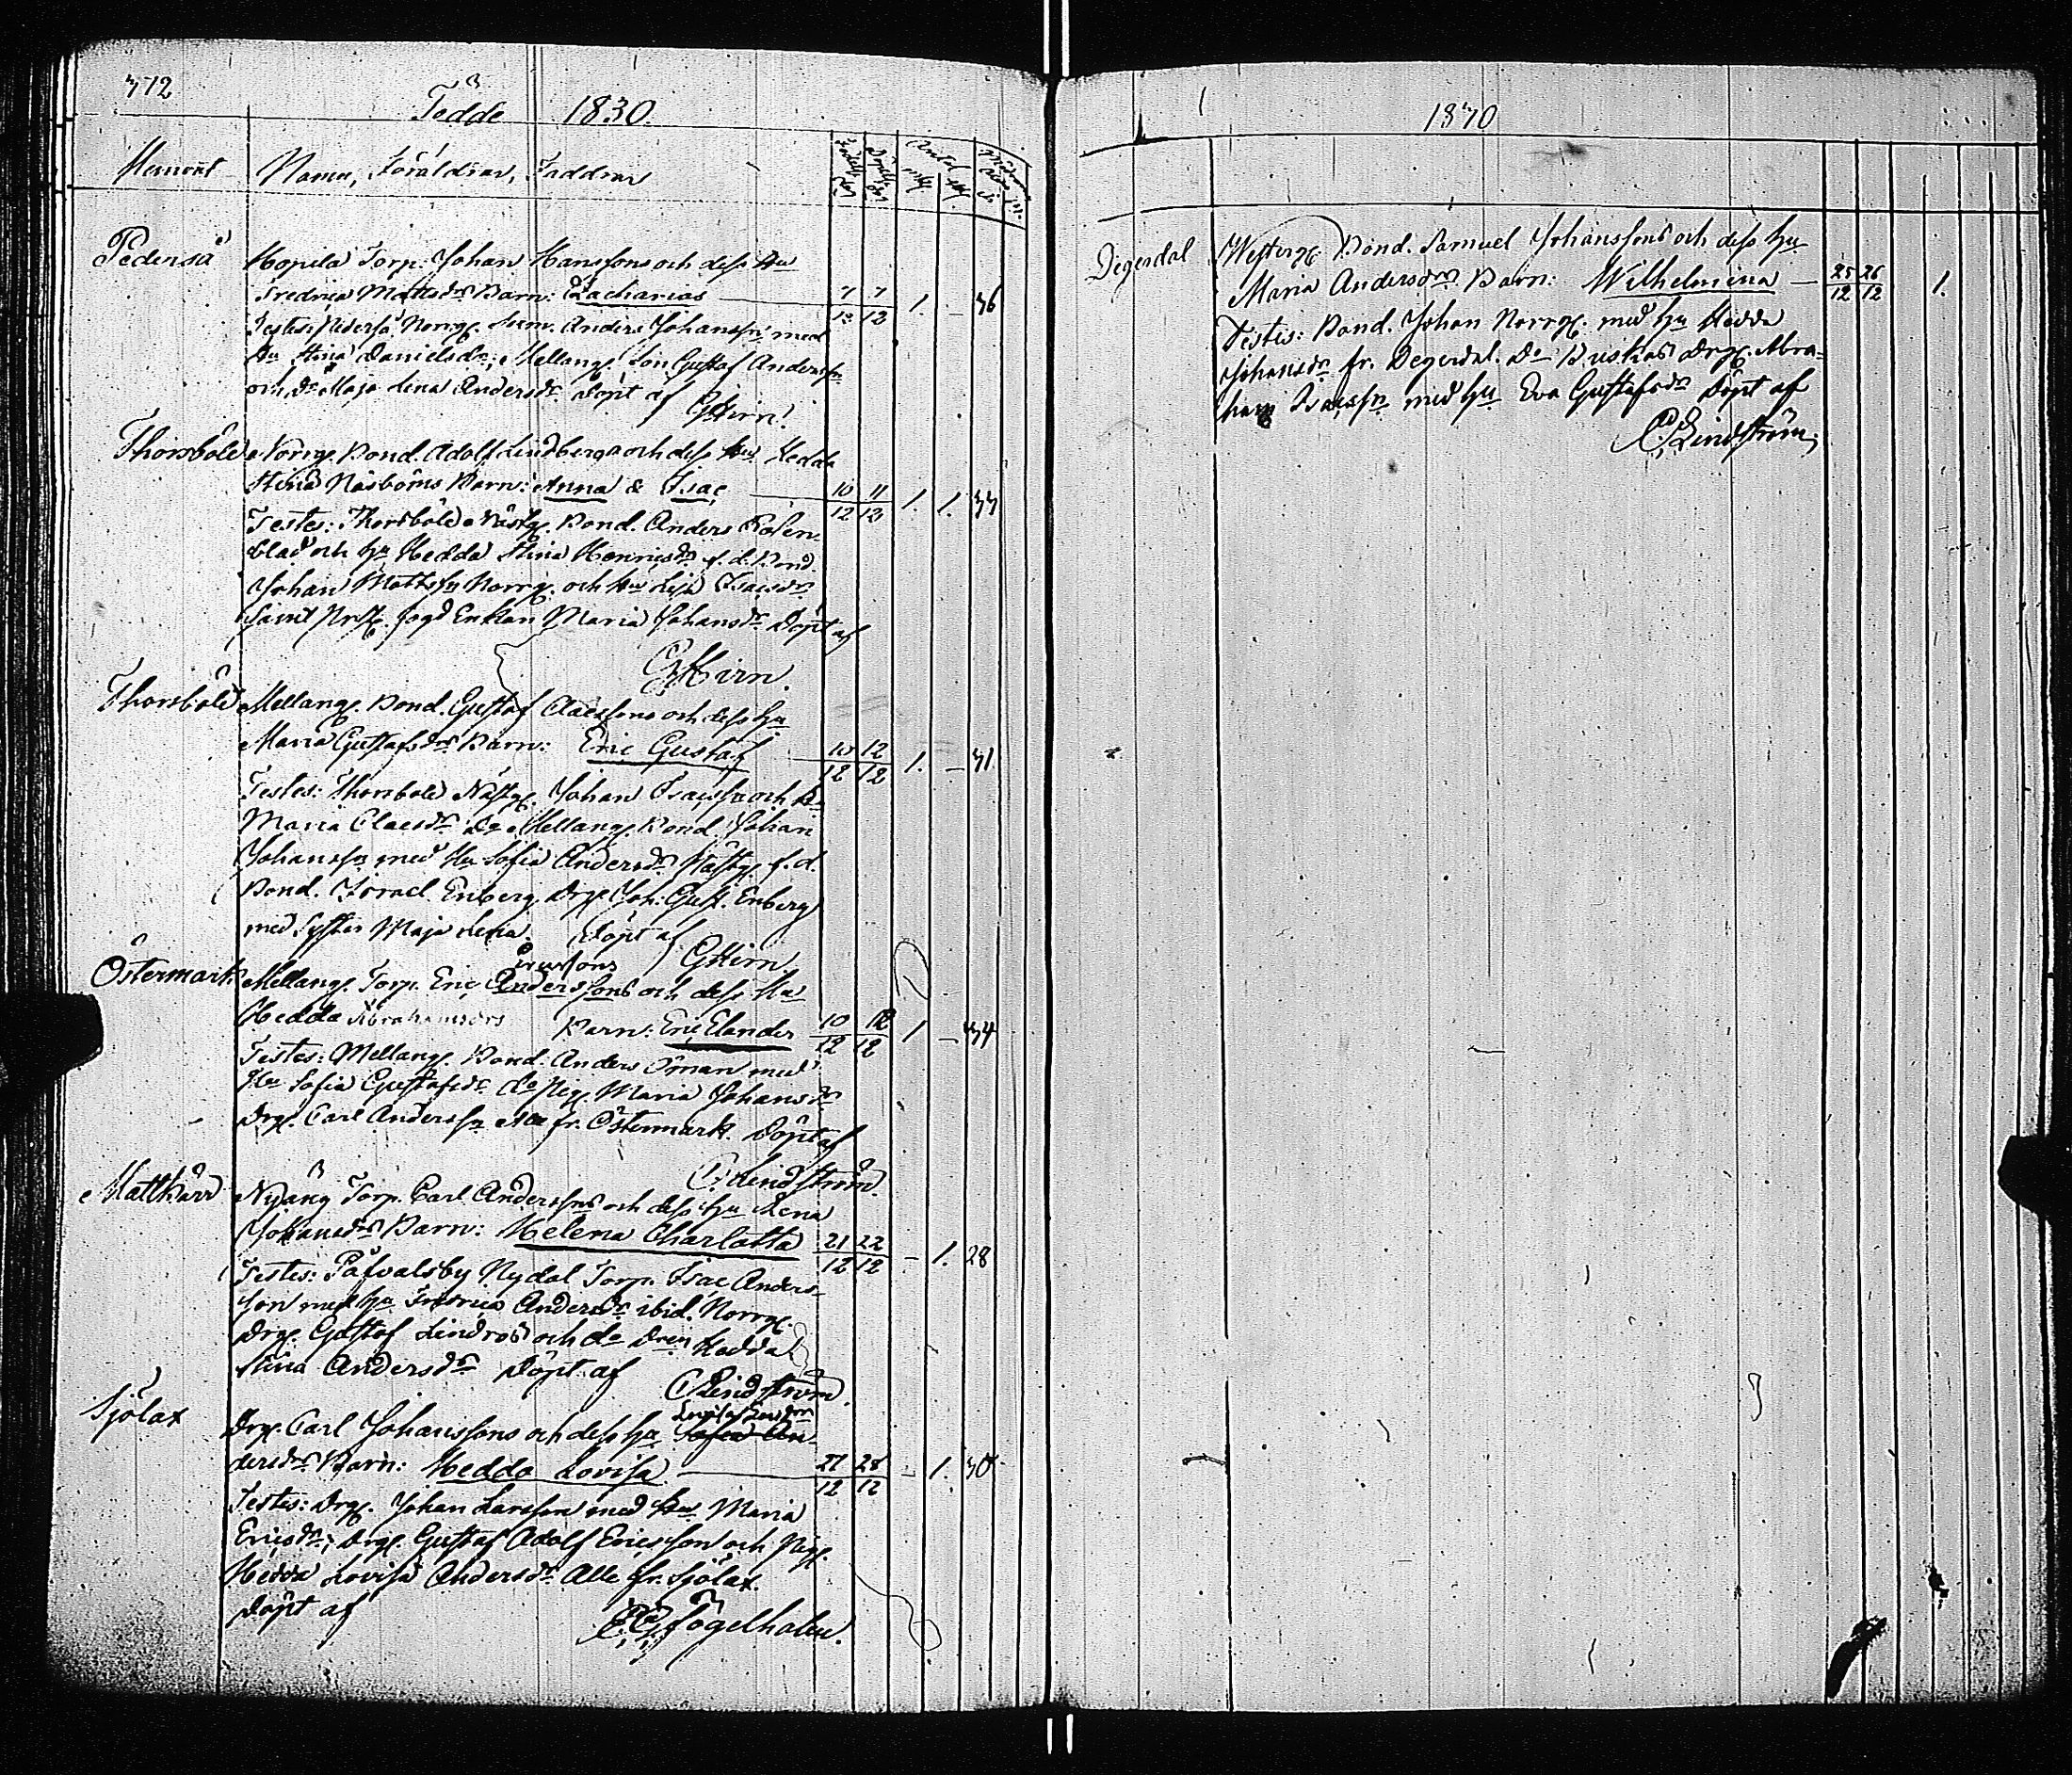 372
Födde 1830.
Hemort Namn, Föräldrar, Faddrar
Pedenså Kopila Torp. Johan Hanssons och dess Hu
Fredrica Mattsdrs Barn: Zacharias 7/12 7/12 1. – 36
Testes: Norrg. Anders Johanssn med
Hu Stina Danielsdr; Mellang. Son Gustaf Anderssn
och Dr Maja Lena Andersdr Döpt af
GHirn.
Thorsböle Norrg. Bond. Adolf Lindbergs och dess Hu Hedda
Stina Näsboms Barn: Anna & Isac 10/12 11/12 1. 1. 33
Testes: Thorsböle Nästg. Bond. Anders Rosen-
blad och hu Hedda Stina Henricsdr f.d. Bond.
Johan Mattssn Norrg. och Hu Lisa Isacsdr
samt Enkan Maria Johansdr Döpt af
GHirn.
Thorsböle Mellang. Bond. Gustaf Claessons och dess hu
Maria Gustafsdrs Barn: Eric Gustaf 10/12 12/12 1. – 31
Testes: Thorsböle Nästg. Johan Isacssn och
Maria Claesdr Do Mellang. Bond. Johan
Johanssn med Hu Sofia Andersdr Nästg. f.d.
Bond. Israel Enberg, Drg. Joh: Gust. Enberg
med Syster Maja Lena. Döpt af
GHirn
Ericssons
Östermark Mellang. Torp. Eric Anderssons och dess Hu
Hedda Abrahamsdrs Barn: Eric Elander 10/12 12/12 1 – 34
Testes: Mellang. Bond. Anders Öman med
Hu Sofia Gustafsdr do Pig. Maria Johansdr
Drg. Carl Anderssn alla fr. Östermark. Döpt af
C. Lindström.
Mattkärr Nyäng Torp. Carl Anderssons och dess hu Lena
Johansdrs Barn: Helena Charlotta 21/12 22/12 – 1. 28
Testes: Påfvalsby Nydal Torp. Isac Anders-
son med hu Fredrica Andersdr ibid. Norrg.
Drg. Gustaf Lindros och do Hedda
Stina Andersdr Döpt af
CLindström
Sjölax Drg. Carl Johanssons och dess hu Sofia An-
dersdrs Barn: Hedda Lovisa 27/12 28/12 – 1. 30
Testes: Drg. Johan Larsson med Hu Maria
Ericsdr; Drg. Gustaf Adolf Ericsson och Pig.
Hedda Lovisa Andersdr Alle fr. Sjölax.
Döpt af
Fogelholm.
1830
Degerdal Westerg. Bond. Samuel Johanssons och dess hu
Maria Andersdrs Barn: Wilhelmina 25/12 26/12 1.
Testes: Bond. Johan Norrg. med hu Hedda
Johansdr fr. Degerdal. Do Buskas Drg. Abra-
ham Isacssn med hu Eva Gustafsdr Döpt af
CLindström